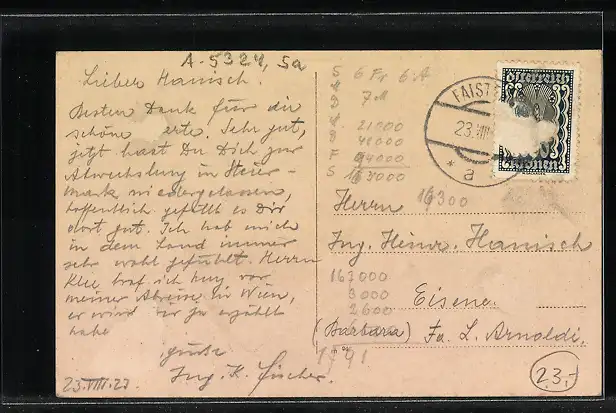 A-5324, 5a
Lieber Hanisch.
Besten Dank für die
schöne Karte. Sehr gut,
jetzt hast Du Dich zur
Abwechslung in Steier-
mark niedergelassen,
hoffentlich gefällt es Dir
dort gut. Ich hab mich
in dem Land immer
sehr wohl gefühlt. Herrn
Klee traf ich kurz vor
meiner Abreise in Wien,
er wird Dir ja erzählt
habe
grüße
Ing. K. Fischer.
23.VIII.23.
S 6 Fr 6 A
7 M
21000
48000
F 94000
S 163000
16300
163000
3000
2600
FAIST
23.VIII
* a
österreich
kronen
Herrn
Ing. Heinr. Hanisch
Eisene
(Barbara) Fa. L. Arnoldi.
23.-